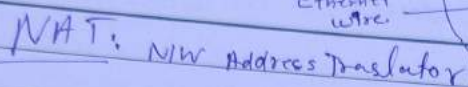 Ethernet
wire.
NAT: N/W Address Traslator